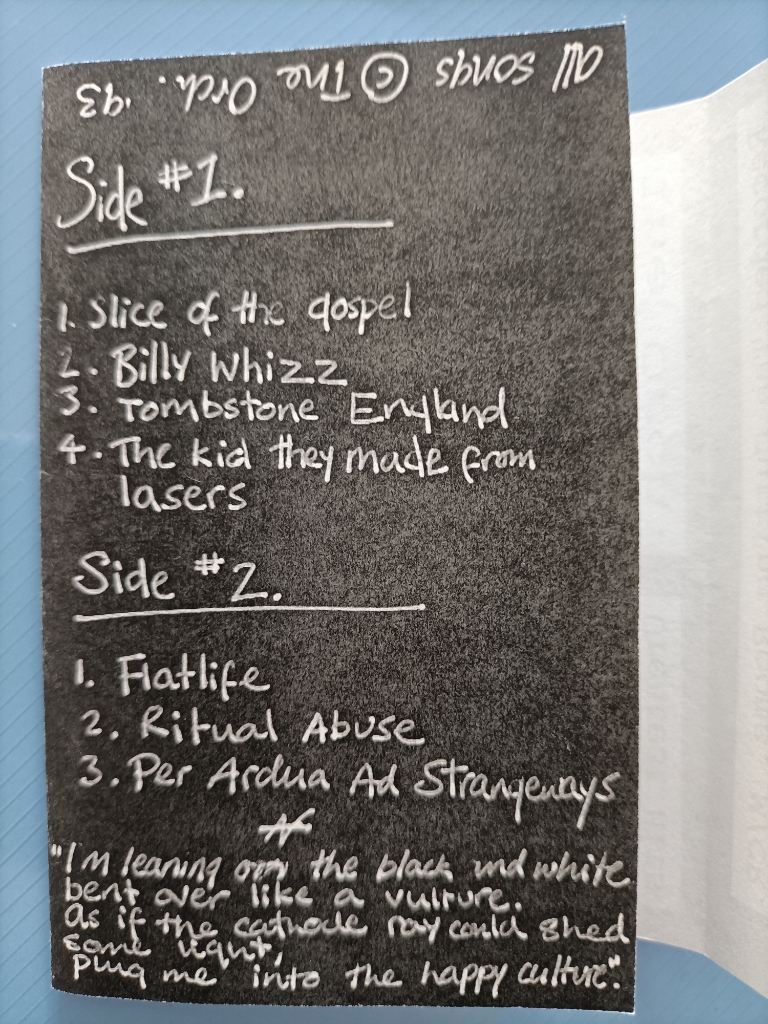 All songs © The Orch. '93
Side #1.
1. Slice of the gospel
2. Billy Whizz
3. Tombstone England
4. The kid they made from
lasers
Side #2.
1. Flatlife
2. Ritual Abuse
3. Per Ardua Ad Strangeways
"I'm leaning over the black and white
bent over like a vulture.
as if the cathode ray could shed
some light,
plug me into the happy culture".